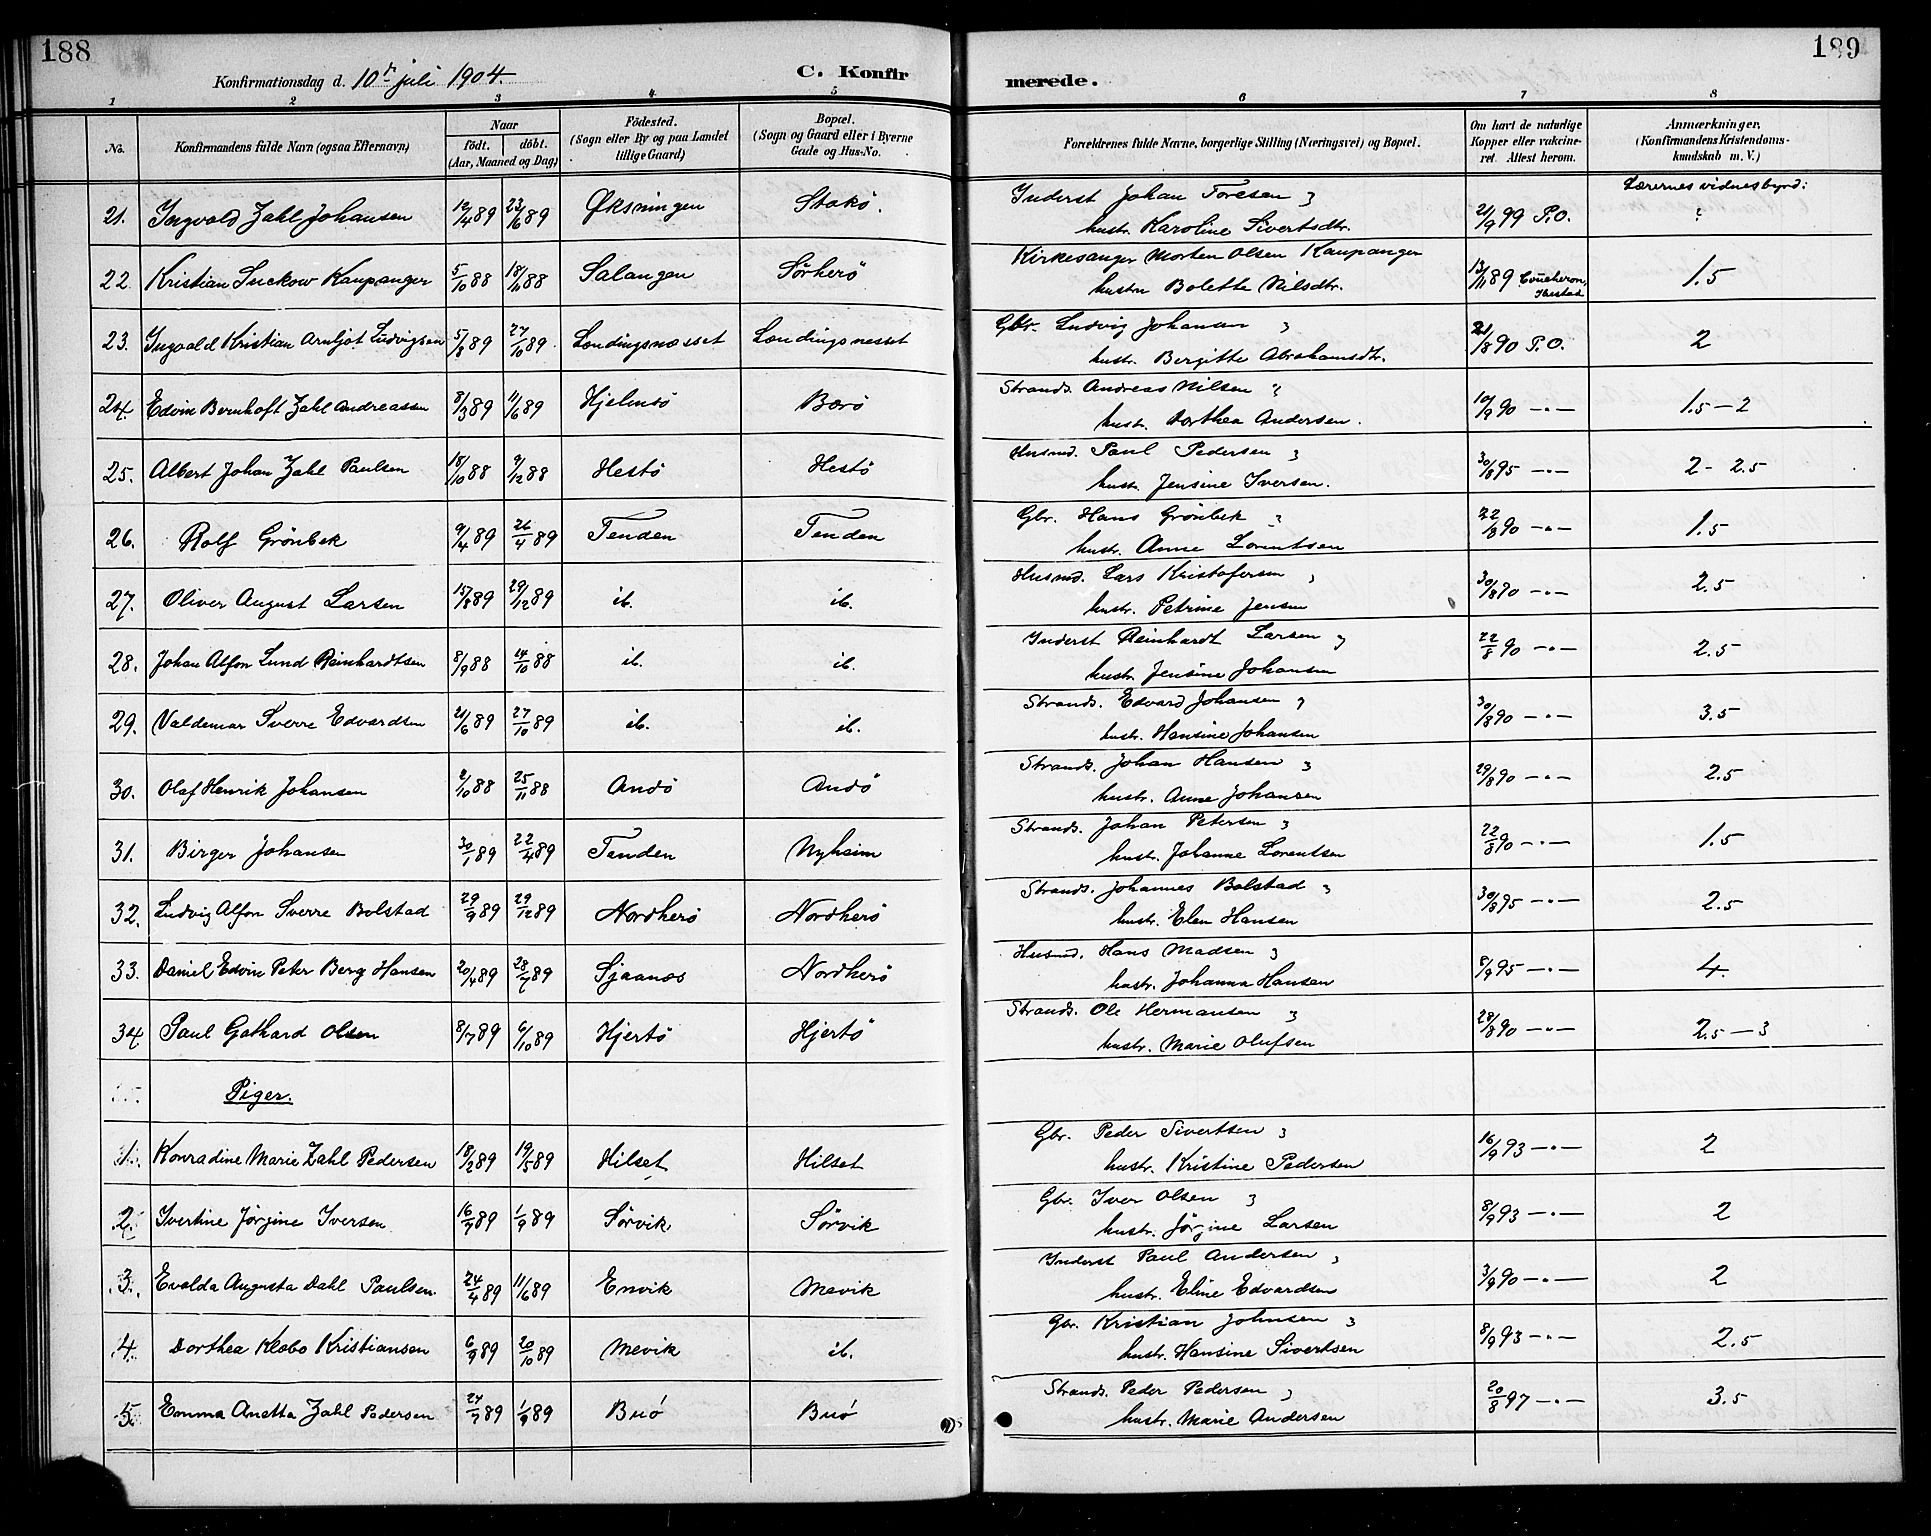 188
189
Konfirmationsdag d. 10de juli 1904.
C. Konfirmerede.
1 2 3 4 5 6 7 8
No.
Konfirmandens fulde Navn (ogsaa Efternavn)
Naar
födt. döbt.
(Aar, Maaned og Dag)
Födested.
(Sogn eller By og paa Landet
tillige Gaard)
Bopæl.
(Sogn og Gaard eller i Byerne
Gade og Hus-No.
Forældrenes fulde Navne, borgerlige Stilling (Næringsvei) og Bopæl.
Om havt de naturlige
Kopper eller vakcine-
ret. Attest herom.
Anmærkninger.
(Konfirmandens Kristendoms-
kundskab m. V.)
Lærernes vidnesbyrd:
21. Ingvald Zahl Johansen 12/4 89 23/6 89 Øksningen Stokö. Inderst Johan Toresen , 21/9 99 P.O. ?
hustr. Karoline Sivertsdtr.
22. Kristian Suckow Kaupanger 5/10 88 18/11 88 Salangen Sørherö Kirkesanger Morten Olsen Kaupanger 13/11 89 1.5
hustru Bolette Nilsdtr. Ibestad
23. Ingvald Kristian Arnljot Ludvigsen 5/8 89 27/10 89 Londingsnæsset Londingsnesset Gbr. Ludvig Johansen , 21/8 90 P.O. 2
hustr. Bergitte Abrahamsdtr.
24. Edvin Bernhoft Zahl Andreassen 8/3 89 11/6 89 Hjelmsö Bærö Strands. Andreas Nilsen , 10/9 90 –"– 1.5 – 2
hustr. Dorthea Andersen.
25. Albert Johan Zahl Paulsen 18/10 88 9/12 88 Hestö Hestö Husmd. Paul Pedersen , 30/8 95 –"– 2 - 2.5
hustr. Jensine Iversen.
26. Rolf Grönbek 9/4 89 26/4 89 Tenden Tenden Gbr. Hans Grönbek , 22/8 90 –"– 1.5
hustr. Anne Lorentsen
27. Oliver August Larsen 15/8 89 29/12 89 ib. ib. Husmd. Lars Kristofersen , 30/8 90 –"– 2.5
hustr. Petrine Jensen
28. Johan Alfon Lund Reinhardtsen 8/9 88 14/10 88 ib. ib. Inderst Reinhardt Larsen , 22/8 90 –"– 2.5
hustr. Jensine Johansen
29. Valdemar Sverre Edvardsen 21/6 89 27/10 89 ib. ib. Strands. Edvard Johansen , 30/8 90 –"– 3.5
hustr. Hansine Johansen
30. Olaf Henrik Johansen 2/10 88 25/11 88 Andö Andö Strands. Johan Hansen , 29/8 90 –"– 2.5
hustr. Anne Johansen
31. Birger Johansen 30/1 89 22/4 89 Tenden Nyheim Strands. Johan Petersen , 22/8 90 –"– 1.5
hustr. Johanne Lorentsen
32. Ludvig Alfon Sverre Bolstad 29/9 89 29/12 89 Nordherö Nordherö Strands. Johannes Bolstad , 30/8 95 –"– 2.5
hustr. Elen Hansen
33. Daniel Edvin Peter Berg Hansen 20/4 89 28/7 89 Sjaanes Nordherö Husmd. Hans Madsen , 8/9 95 –"– 4.
hustr. Johanna Hansen
34 Paul Gathard Olsen 8/7 89 6/10 89 Hjertö Hjertö Strands. Ole Hermansen , 28/8 90 –"– 2.5 – 3
hustr. Marie Olufsen
Piger.
1. Konradine Marie Zahl Pedersen 18/2 89 19/5 89 Hilset Hilset Gbr. Peder Sivertsen , 16/9 93 –"– 2
hustr. Kristine Pedersen
2. Ivertine Jørgine Iversen 16/7 89 1/9 89 Sørvik Sørvik Gbr. Iver Olsen , 8/9 93 –"– 2
hustr. Jørgine Larsen
3. Evalda Augusta Dahl Paulsen. 24/4 89 11/6 89 Envik Mevik Inderst Paul Andersen , 3/9 90 –"– 2
hustr. Eline Edvardsen
4. Dorthea Klæbo Kristiansen 6/9 89 20/10 89 Mevik ib. Gbr. Kristian Johnsen , 8/9 93 –"– 2.5
hustr. Hansine Sivertsen
5. Emma Anetta Zahl Pedersen 24/7 89 1/9 89 Buö Buö Strands. Peder Pedersen , 20/8 97 –"– 3.5
hustr. Marie Andersen